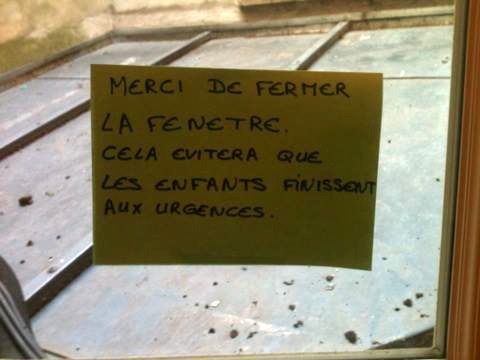 MERCI DE FERMER
LA FENETRE.
CELA EVITERA QUE
LES ENFANTS FINISSENT
AUX URGENCES.